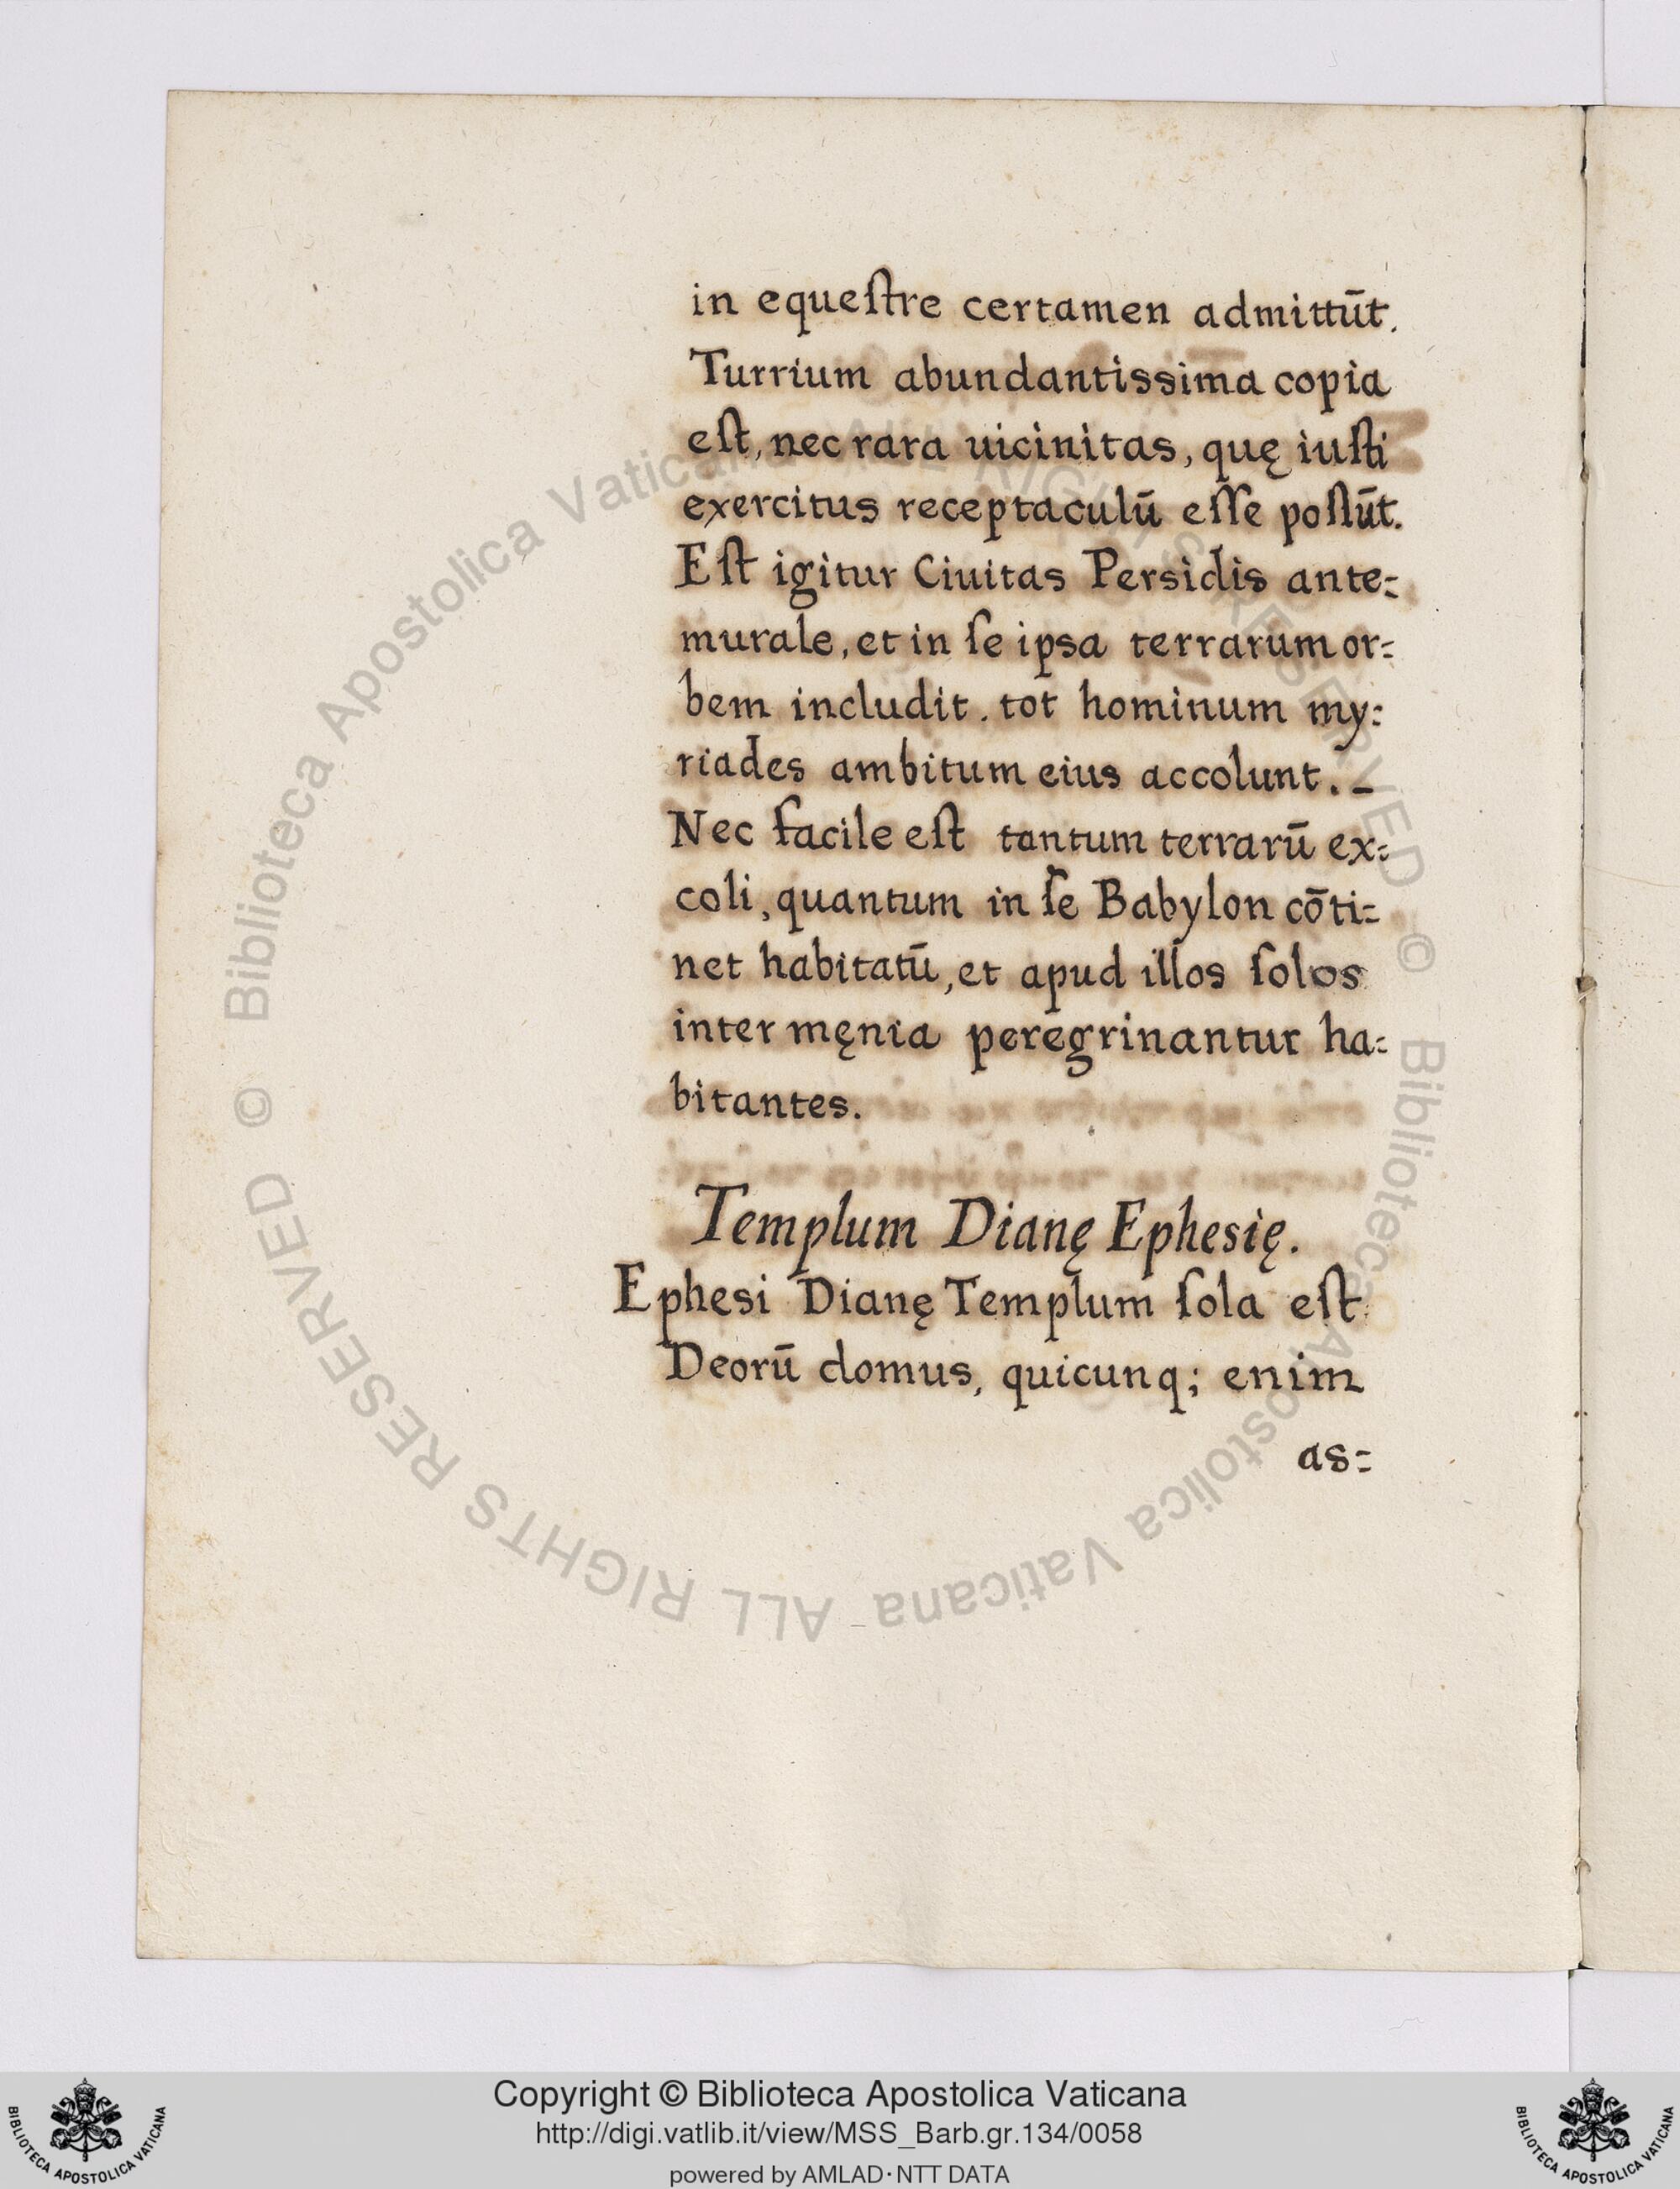 in equeſtre certamen admittūt.
Turrium abundantissima copia
eſt, nec rara uicinitas, quę iuſti
exercitus receptaculū eſſe poſſūt.
Eſt igitur Ciuitas Persidis ante=
murale, et in ſe ipsa terrarum or=
bem includit. tot hominum my=
riades ambitum eius accolunt. _
Nec facile eſt tantum terrarū ex=
coli, quantum in ſe Babylon cōti=
net habitatū, et apud illos ſolos
inter męnia peregrinantur ha=
bitantes.
Templum Dianę Ephesię.
Ephesi Dianę Templum ſola eſt
Deorū domus, quicunq; enim
as=
© Biblioteca Apostolica Vaticana ALL RIGHTS RESERVED © Biblioteca Apostolica Vaticana ALL RIGHTS RESERVED
Copyright © Biblioteca Apostolica Vaticana
http://digi.vatlib.it/view/MSS_Barb.gr.134/0058
powered by AMLAD·NTT DATA
BIBLIOTECA APOSTOLICA VATICANA
BIBLIOTECA APOSTOLICA VATICANA